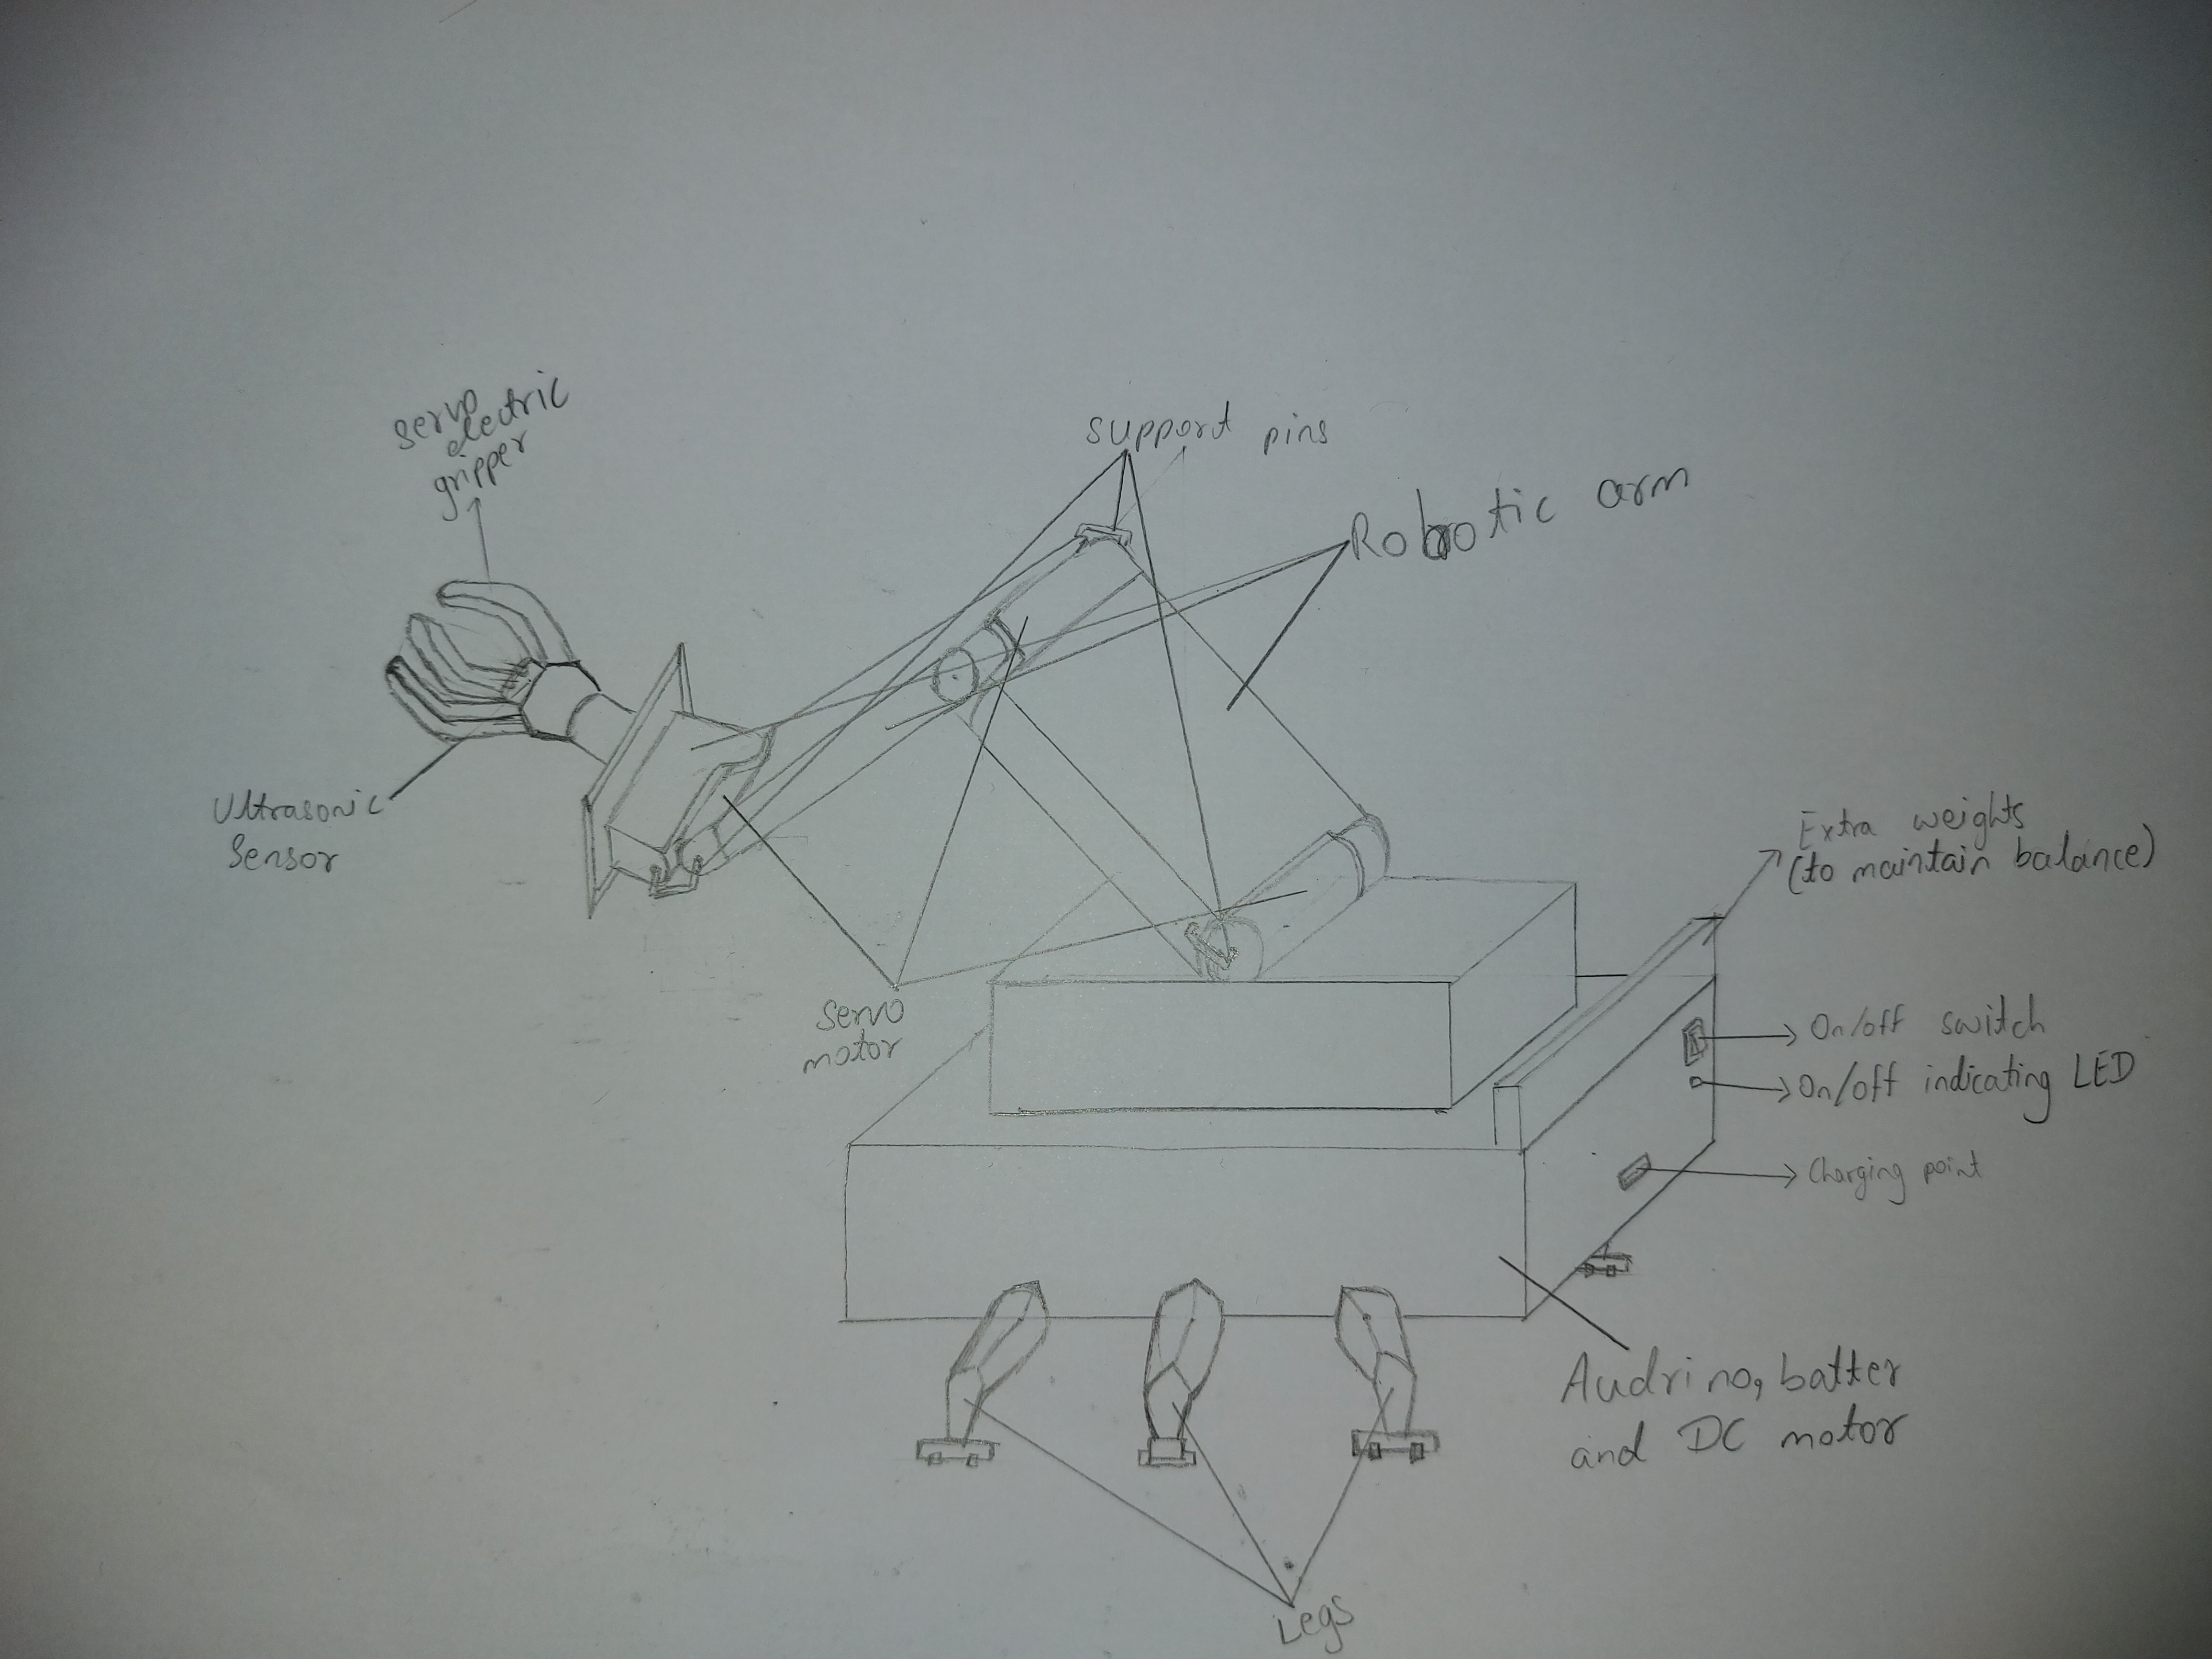 servo
electric
gripper
support pins
Robotic arm
Ultrasonic
Sensor
Extra weights
(to maintain balance)
servo
motor
On/off switch
On/off indicating LED
Charging point
Audrino, batter
and DC motor
Legs